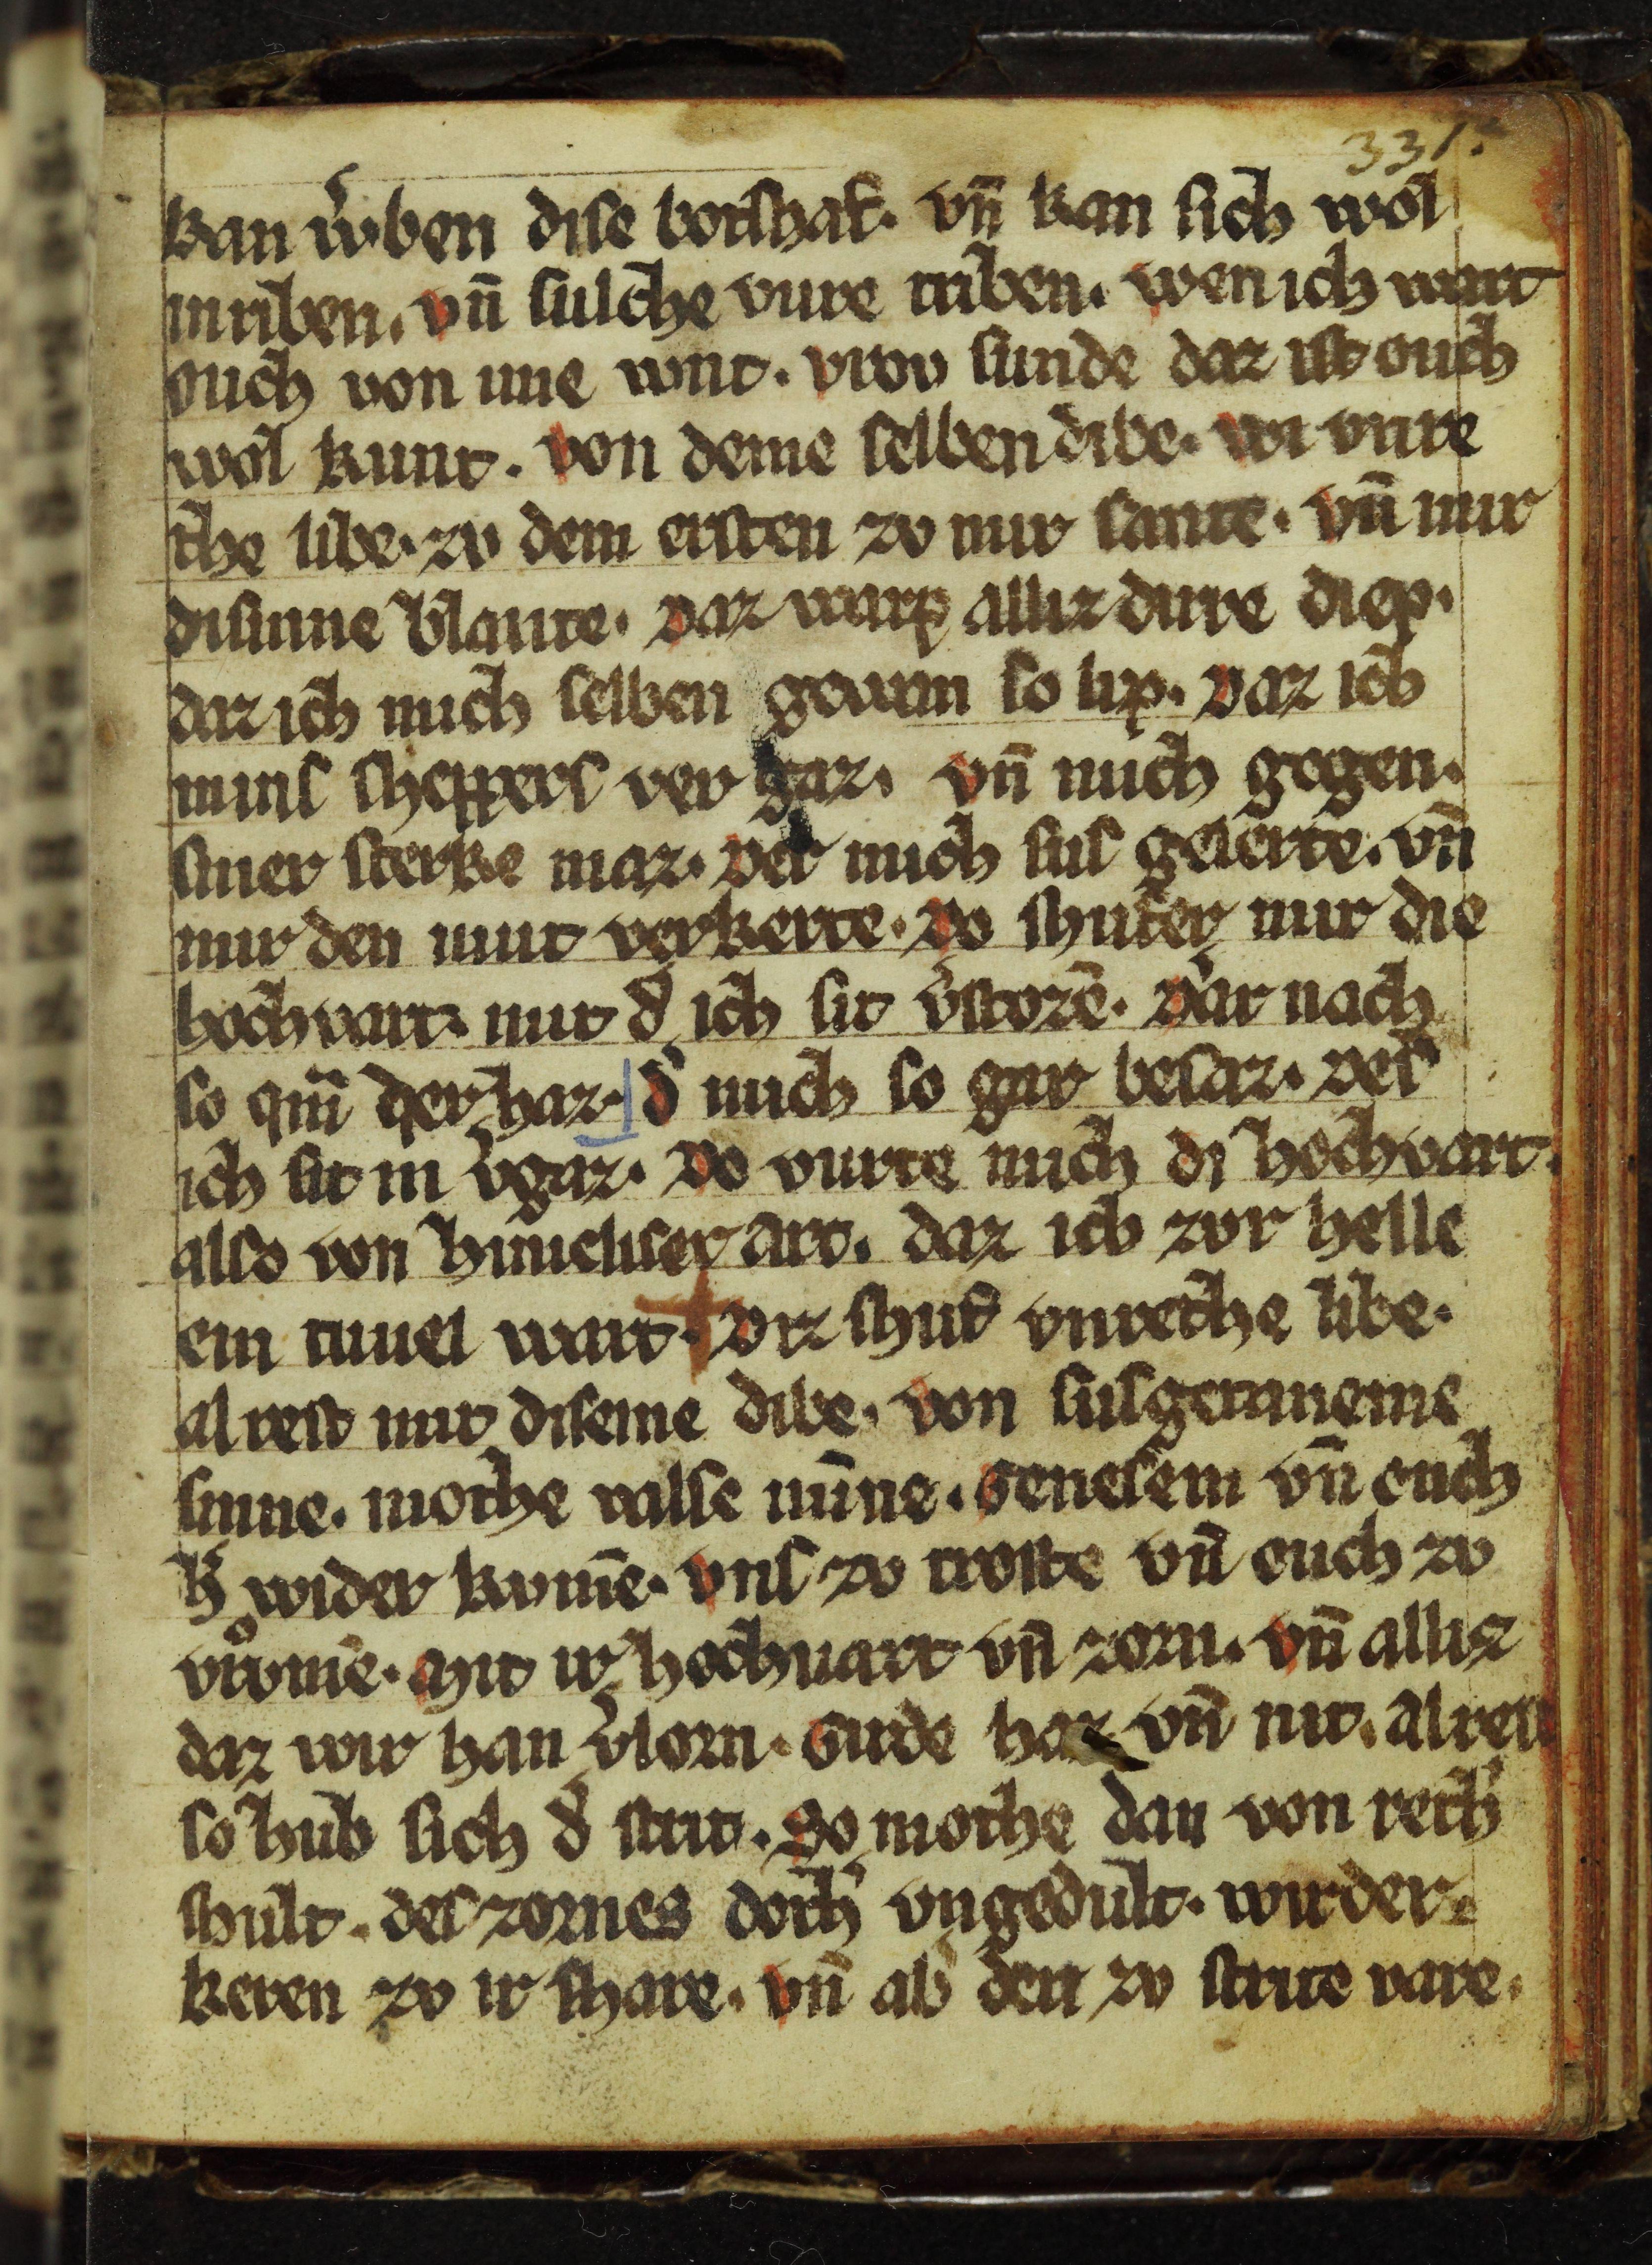 331.
kan w͛ben dise botshaf. vn̄ kan sich wol
in riben. vn̄ sulche vure triben. wen ich wart
ouch von ime wnt. vwv sunde daz ist ouch
wol kunt. von deme selben dibe. wi vnre
the libe. zv dem ersten zv mir sante. vn̄ mir
di sinne v͛lante. Daz warp alliz dirre diep.
daz ich mich selben gewan so lip. Daz ich
mins sheppers ver gaz. vn̄ mich gegen.
siner sterke maz. Der mich sus gelerte. vn̄
mir den mut verkerte. Do shufer mir die
hochvart. mit d͛ ich sit v͛storē. Dar nach
so qm̄ der haz. d͛ mich so gar besaz. Des
ich sit in v͛gaz. Do vurte mich di hochvart.
also von himeliser art. daz ich zvr helle
ein tuuel wart. Diz shuf vnrethe libe.
al rest mit diseme dibe. von susgetaneme
sinne. mothe valse mīne. Genesem vn̄ ouch
h͛ wider kvmē. vns zv troste vn̄ ouch zv
vrvmē. Mit ir hochuart vn̄ zorn. vn̄ alliz
daz wir han v͛lorn. Girde haz vn̄ nit. Al rest
so hub sich d͛ strit. So mothe dan von reth͛
shult. des zornes doth͛ vngedult. wider
keren zv ir share. vn̄ ab͛ den zv strite vare.